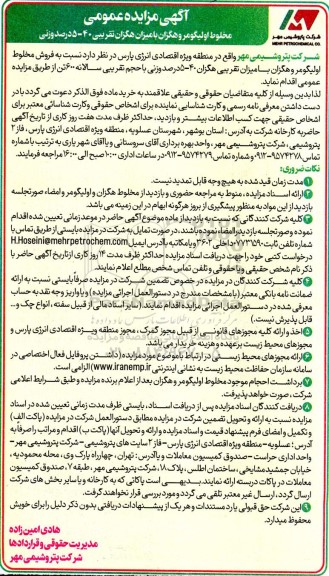 آگهی مزایده عمومی
شرکت پتروشیمی مهر
MEHR PETROCHEMICAL CO.
مخلوط اولیگومر و هگزان با میزان هگزان تقریبی ۴۰-۵۰ درصد وزنی
شرکت پتروشیمی مهر واقع در منطقه ویژه اقتصادی انرژی پارس در نظر دارد نسبت به فروش مخلوط
اولیگومر و هگزان با میزان تقریبی هگزان ۴۰-۵۰ درصد وزنی با حجم تقریبی سالانه ۶۰۰ تن از طریق مزایده
عمومی اقدام نماید.
لذا بدین وسیله از کلیه متقاضیان حقوقی و حقیقی علاقمند به خرید ماده فوق الذکر دعوت می گردد با در
دست داشتن معرفی نامه رسمی و کارت شناسایی نماینده برای اشخاص حقوقی و کارت شناسائی معتبر برای
اشخاص حقیقی جهت کسب اطلاعات بیشتر و بازدید، حداکثر ظرف مدت هفت روز کاری از تاریخ آگهی
حاضر به کارخانه شرکت به آدرس: استان بوشهر، شهرستان عسلویه، منطقه ویژه اقتصادی انرژی پارس، فاز ۲
پتروشیمی، پتروشیمی مهر، واحد بهره برداری آقای سروستانی و یا آقای شهریاری به ترتیب با شماره
نکات ضروری:
۱ مدت زمان قید شده به هیچ وجه قابل تمدید نیست.
۲ ارائه اسناد مزایده، منوط به مراجعه حضوری و بازدید از مخلوط هگزان و اولیگومر و امضاء صورتجلسه
بازدید از این مواد به منظور پیشگیری از بروز هرگونه ابهام در این زمینه می باشد.
۳ کلیه شرکت کنندگانی که نسبت به بازدید از ماده موضوع آگهی حاضر در موعد زمانی تعیین شده اقدام
نموده و صورتجلسه بازدید را امضاء نموده باشند، در صورت تمایل به شرکت در مزایده بایستی از طریق تماس با
H.Hosseini@mehrpetrochem.com
درخواست کتبی خود را جهت دریافت اسناد مزایده حداکثر ظرف مدت ۱۴ روز کاری از تاریخ آگهی حاضر با
ذکر نام شخص حقیقی و یا حقوقی و تلفن تماس شخص مطلع اعلام نمایند.
۴ کلیه شرکت کنندگان در مزایده در خصوص تضمین شرکت در مزایده صرفاً بایستی نسبت به ارائه
ضمانت نامه بانکی معتبر (با مشخصات مندرج در دستورالعمل اجرائی مزایده) و یا واریز وجه نقد به حساب
معرفی شده در دستورالعمل اجرائی مزایده اقدام نمایند (سایر اسناد مالی از قبیل سفته، انواع چک و...
قابل پذیرش نیست.)
۵ اخذ و ارائه کلیه مجوزهای قانونی از قبیل مجوز گمرک، مجوز منطقه ویژه اقتصادی انرژی پارس و
مجوزهای محیط زیست بر عهده و هزینه خریدار می باشد.
۶ ارائه مجوزهای محیط زیستی در ارتباط با موضوع مورد مزایده (داشتن پروفایل فعال اختصاصی در
سامانه سازمان حفاظت محیط زیست به نشانی اینترنتی www.iranemp.ir) الزامی است.
۷ برداشت احجام موجود مخلوط اولیگومر و هگزان بعد از اعلام برنده مزایده و طبق شرایط اعلامی
شرکت، صورت خواهد پذیرفت.
۸ دریافت کنندگان اسناد مزایده پس از دریافت اسناد، بایستی ظرف مدت زمانی تعیین شده در اسناد
مزایده نسبت به ارائه و تحویل تضمین شرکت در مزایده مطابق دستورالعمل شرکت در مزایده (پاکت الف)
و تکمیل و امضای فرم پیشنهاد قیمت و اسناد مزایده و ارائه و تحویل آنها (پاکت ب) اقدام و مراتب را صرفاً به
آدرس: عسلویه - منطقه ویژه اقتصادی انرژی پارس - فاز ۲ سایت های پتروشیمی - شرکت پتروشیمی مهر -
واحد اداری حراست - صندوق کمیسیون معاملات و یا آدرس: تهران، چهارراه پارک وی، محله محمودیه،
خیابان جمشید مشایخی، ساختمان اطلس، پلاک ۱۸، شرکت پتروشیمی مهر، طبقه ۷، صندوق کمیسیون
معاملات در پاکات در بسته ارائه نمایند. بدیهی است پاکاتی که به کارخانه و یا سایر بخش های شرکت
ارسال گردد، ارسال غیر معتبر تلقی می گردد و مورد بررسی قرار نخواهند گرفت.
این شرکت حق قبولی یا رد مستندات و هر یک از پیشنهادات دریافتی بدون ذکر دلیل را برای خویش
محفوظ میدارد.
هادی امین زاده
مدیریت حقوقی و قراردادها
شرکت پتروشیمی مهر